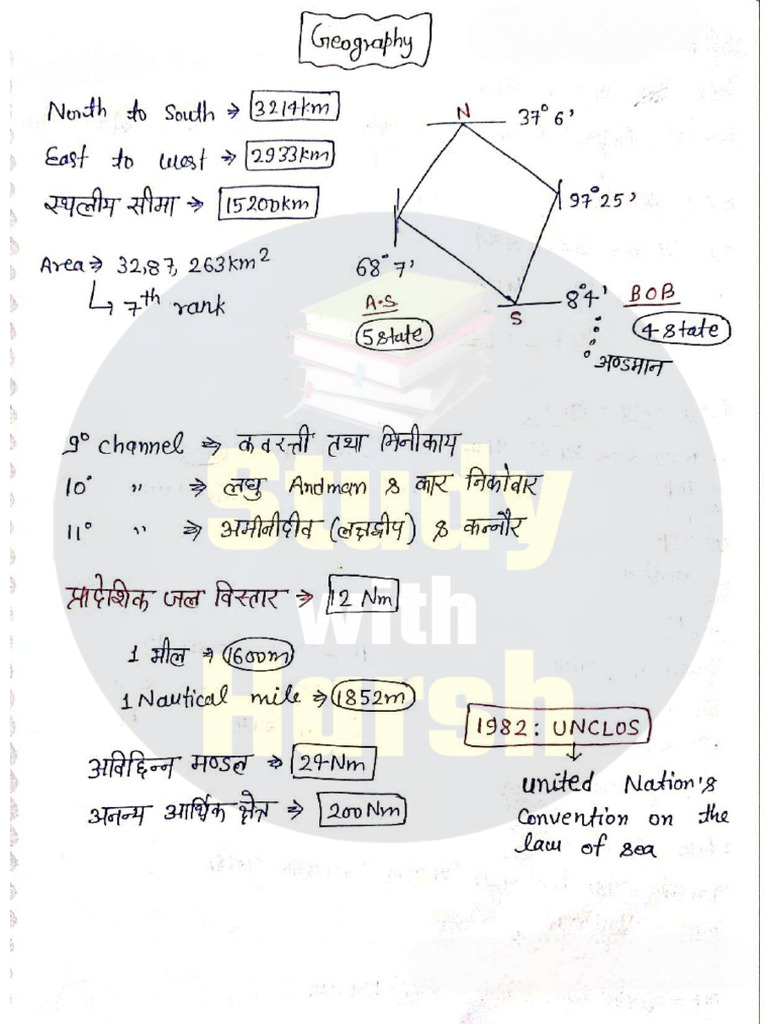 Geography
North to South → 3214km
East to west → 2933km
स्थलीय सीमा → 15200km
Area → 32,87,263km²
↳ 7th rank
N 37°6'
97°25'
68°7'
8°4'
S
A.S
5 state
BOB
4 state
अण्डमान
9° channel → कवरत्ती तथा मिनीकाय
10° " → लघु Andman & कार निकोबार
11° " → अमीनीदीव (लक्षद्वीप) & कन्नौर
प्रादेशिक जल विस्तार → 12 Nm
1 मील → 1600m
1 Nautical mile → 1852m
अविछिन्न मण्डल → 24Nm
अनन्य आर्थिक क्षेत्र → 200Nm
1982: UNCLOS
united Nation's
Convention on the
law of sea
Study
with
Harsh